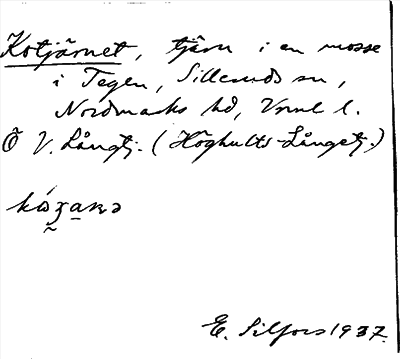 Kotjärnet, tjärn i en mosse
i Tegen, Silleruds sn,
Nordmarks hd, Vrml l.
Ö V. Långtj. (Höghults-Långetj.)
E. Silfors 1937.